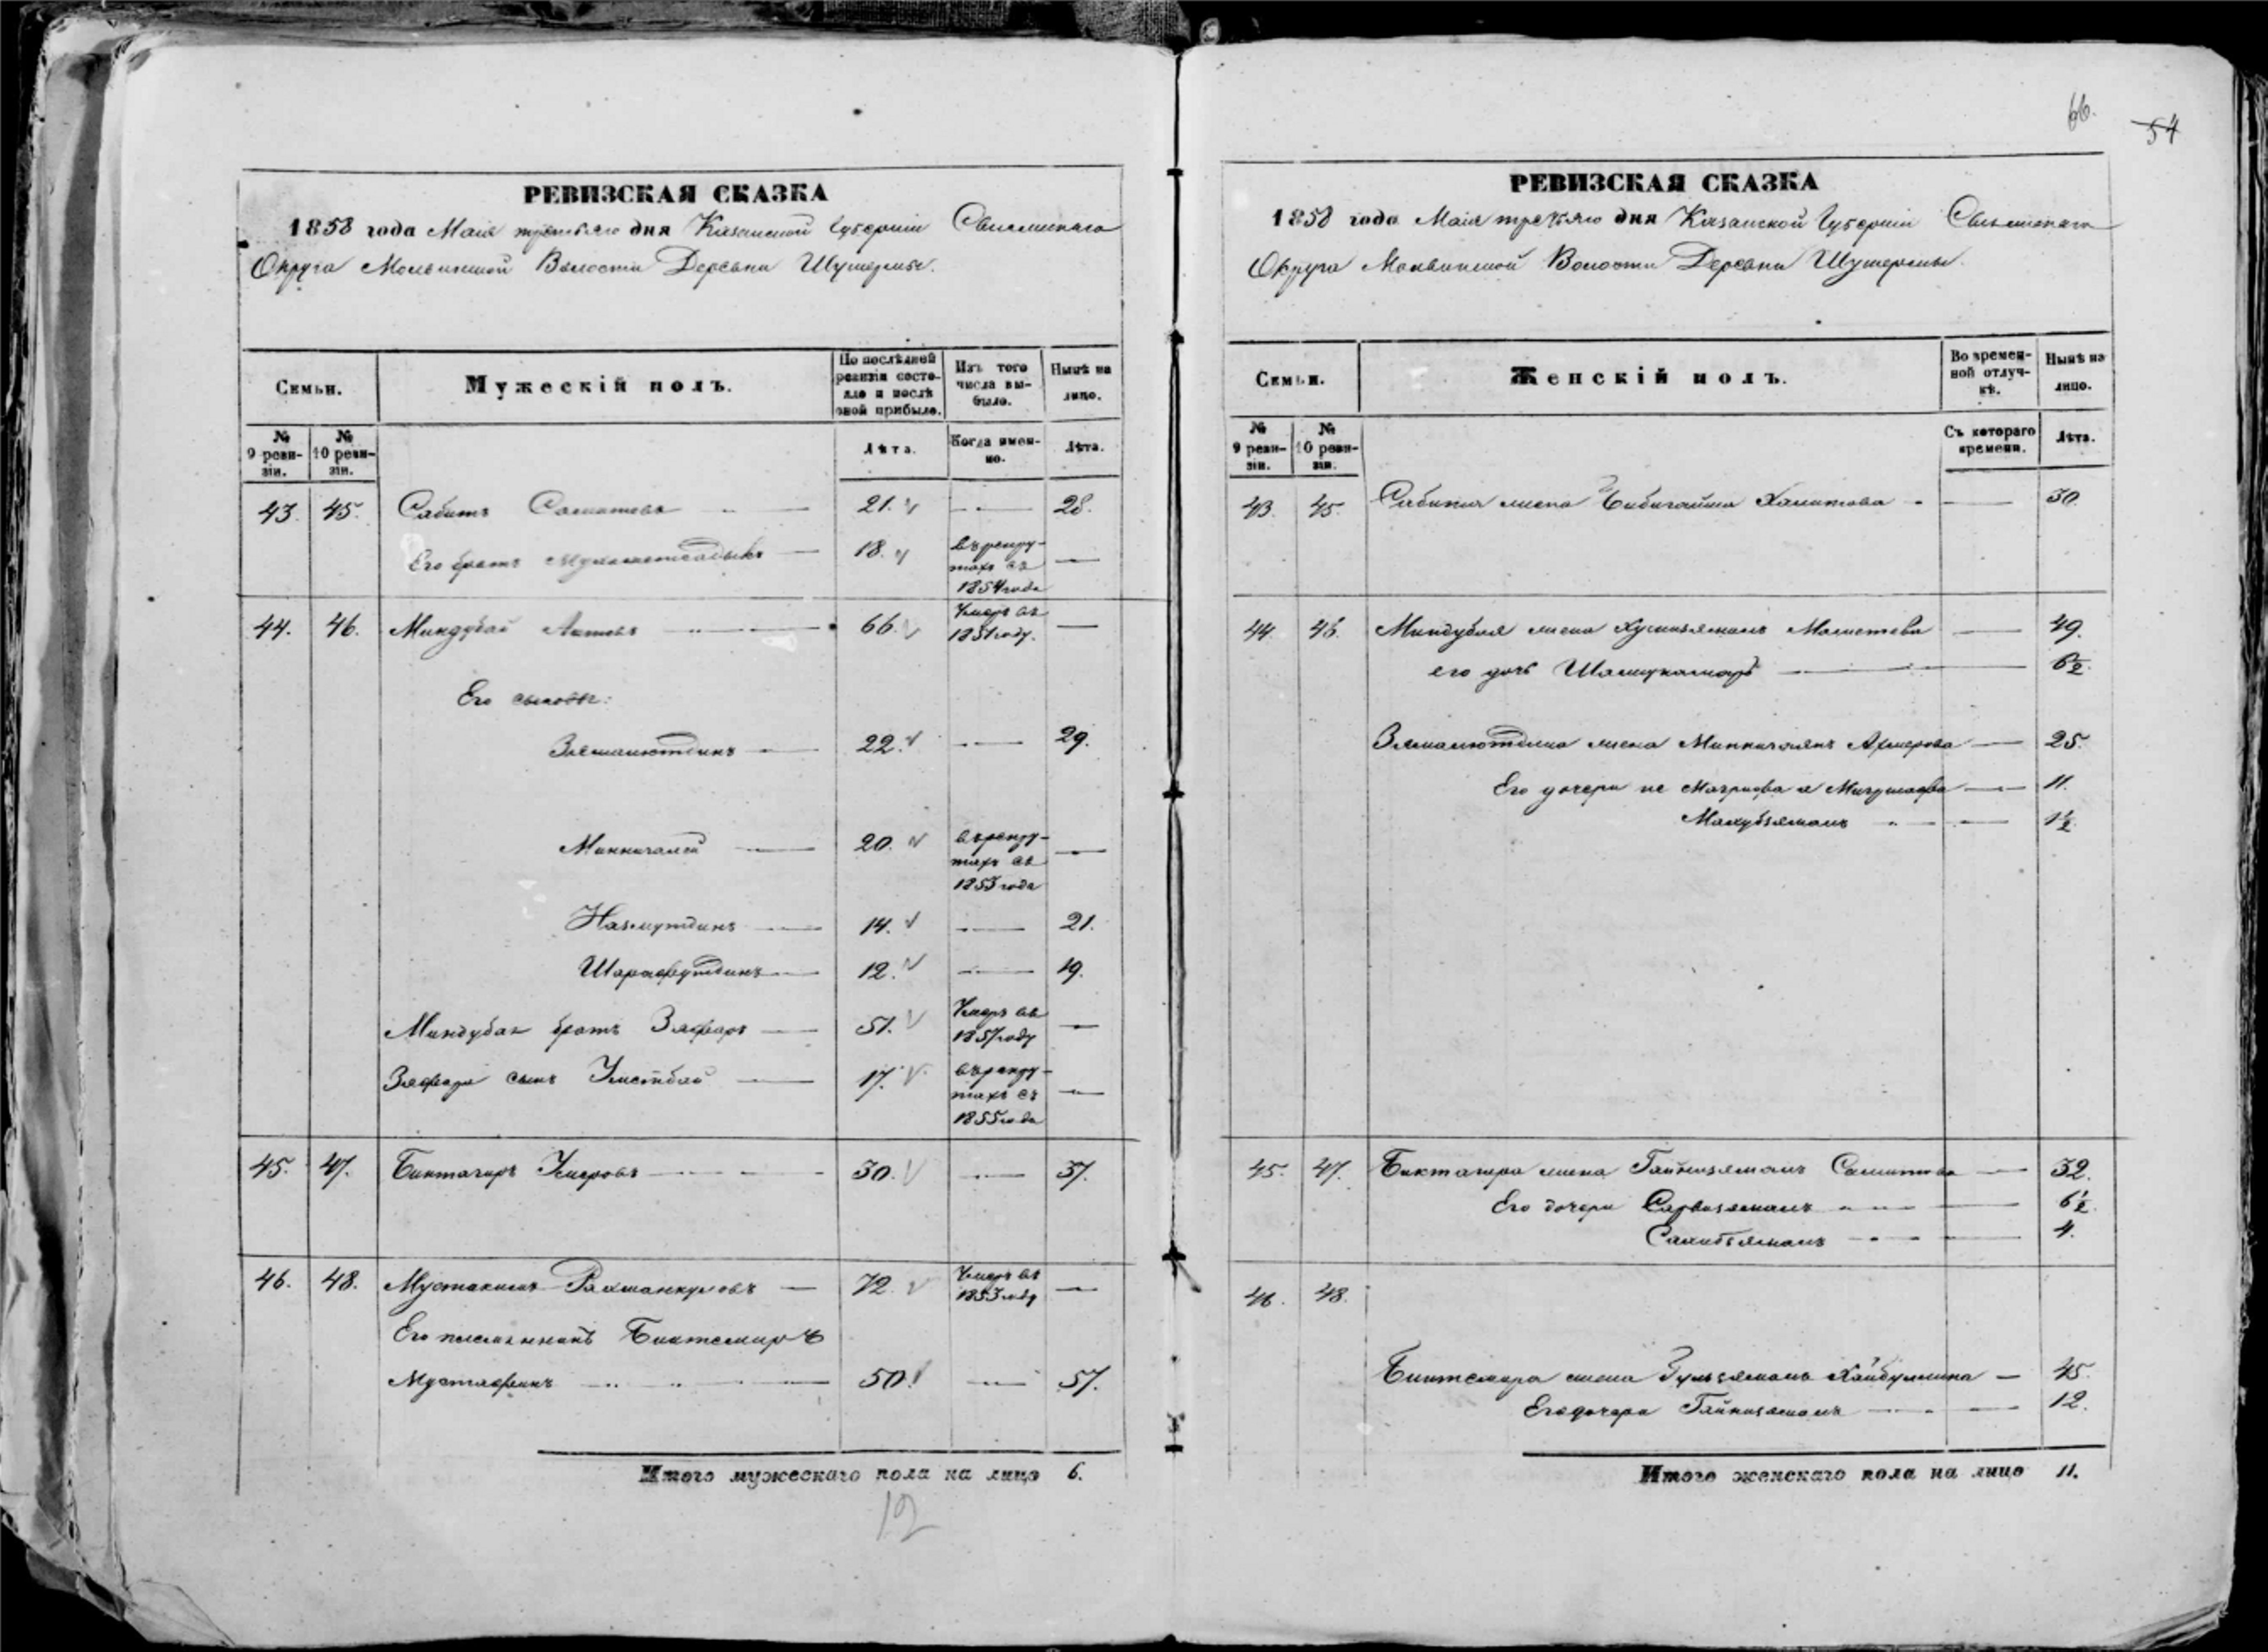 66.
54
РЕВИЗСКАЯ СКАЗКА
1858 года Маія третьяго дня Казанской Губерніи
Округа Волости Деревни Шушермы.
Семьи.
Мужескій полъ.
По послѣдней ревизіи состояло и послѣ оной прибыло.
Изъ того числа выбыло.
Нынѣ на лицо.
№ 9 ревизіи.
№ 10 ревизіи.
Лѣта.
Когда именно.
Лѣта.
43. 45. Сабитъ Саматовъ 21. 28.
Его братъ Мухаметсадыкъ 18. въ рекрутахъ съ 1854 года
44. 46. Миндубай Аитовъ 66. Умеръ въ 1851 году.
Его сыновья:
Зямалютдинъ 22. 29.
Миннигалей 20. въ рекрутахъ съ 1853 года
Назмутдинъ 14. 21.
Шарафутдинъ 12. 19.
Миндубая братъ Зяфаръ 51. Умеръ въ 1857 году
Зяфара сынъ Уметбай 17. въ рекрутахъ съ 1855 года
45. 47. Биктагиръ Умеровъ 30. 37.
46. 48. Мустакимъ Рахманкуловъ 72. Умеръ въ 1853 году
Его племянникъ Биктемиръ
Мустафинъ 50. 57.
Итого мужескаго пола на лицо 6.
12
РЕВИЗСКАЯ СКАЗКА
1858 года Маія третьяго дня Казанской Губерніи
Округа Волости Деревни Шушермы.
Семьи.
Женскій полъ.
Во временной отлучкѣ.
Нынѣ на лицо.
№ 9 ревизіи.
№ 10 ревизіи.
Съ котораго времени.
Лѣта.
43. 45. Сабита жена Бибигайша Халитова 30.
44. 46. Миндубая жена Хусниямалъ Маметева 49.
его дочь Шамукамаръ 6½.
Зямалютдина жена Миннигаянъ Амерова 25.
Его дочери 11.
Махубзямалъ 1½.
45. 47. Биктагира жена Гайнизямалъ Самитова 32.
Его дочери Сарвизямалъ 6½.
Сахибзямалъ 4.
46. 48.
Биктемира жена Гульзямалъ Хайбуллина 45.
Его дочери Гайнизямалъ 12.
Итого женскаго пола на лицо 11.